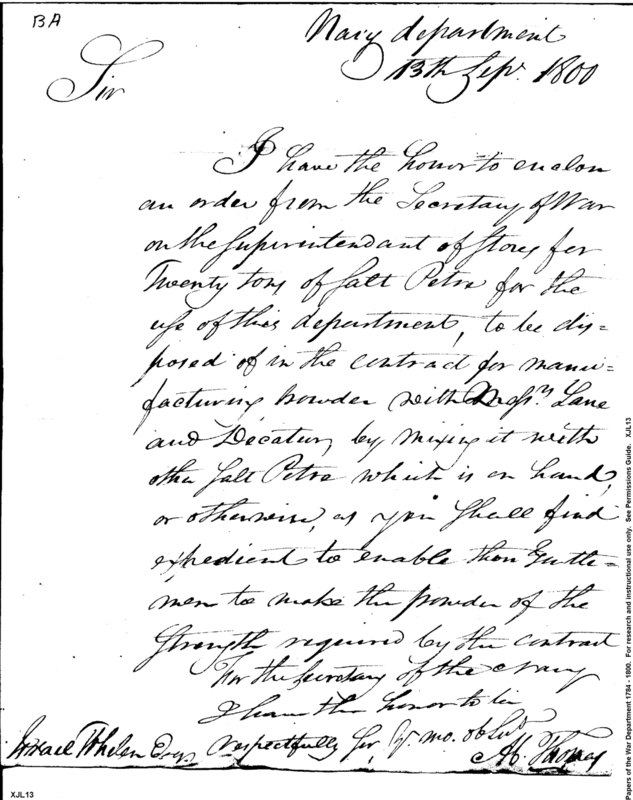 BA
Navy department
13th Sepr. 1800
Sir
I have the honor to enclose
an order from the Secretary of War
on the Superintendant of Stores for
Twenty tons of Salt Petre for the
use of this department, to be dis=
posed of in the contract for manu=
facturing powder with Messrs. Lane
and Decatur, by mixing it with
other Salt Petre which is on hand,
or otherwise, as you shall find
expedient to enable those Gentle=
men to make the powder of the
Strength required by the contract
For the Secretary of the Navy
I have the honor to be
respectfully Sir, Yr. mo. ob Svt
Israel Whelen Esqr
Ab. Thomas
XJL13
Papers of the War Department 1784 - 1800. For research and instructional use only. See Permissions Guide. XJL13